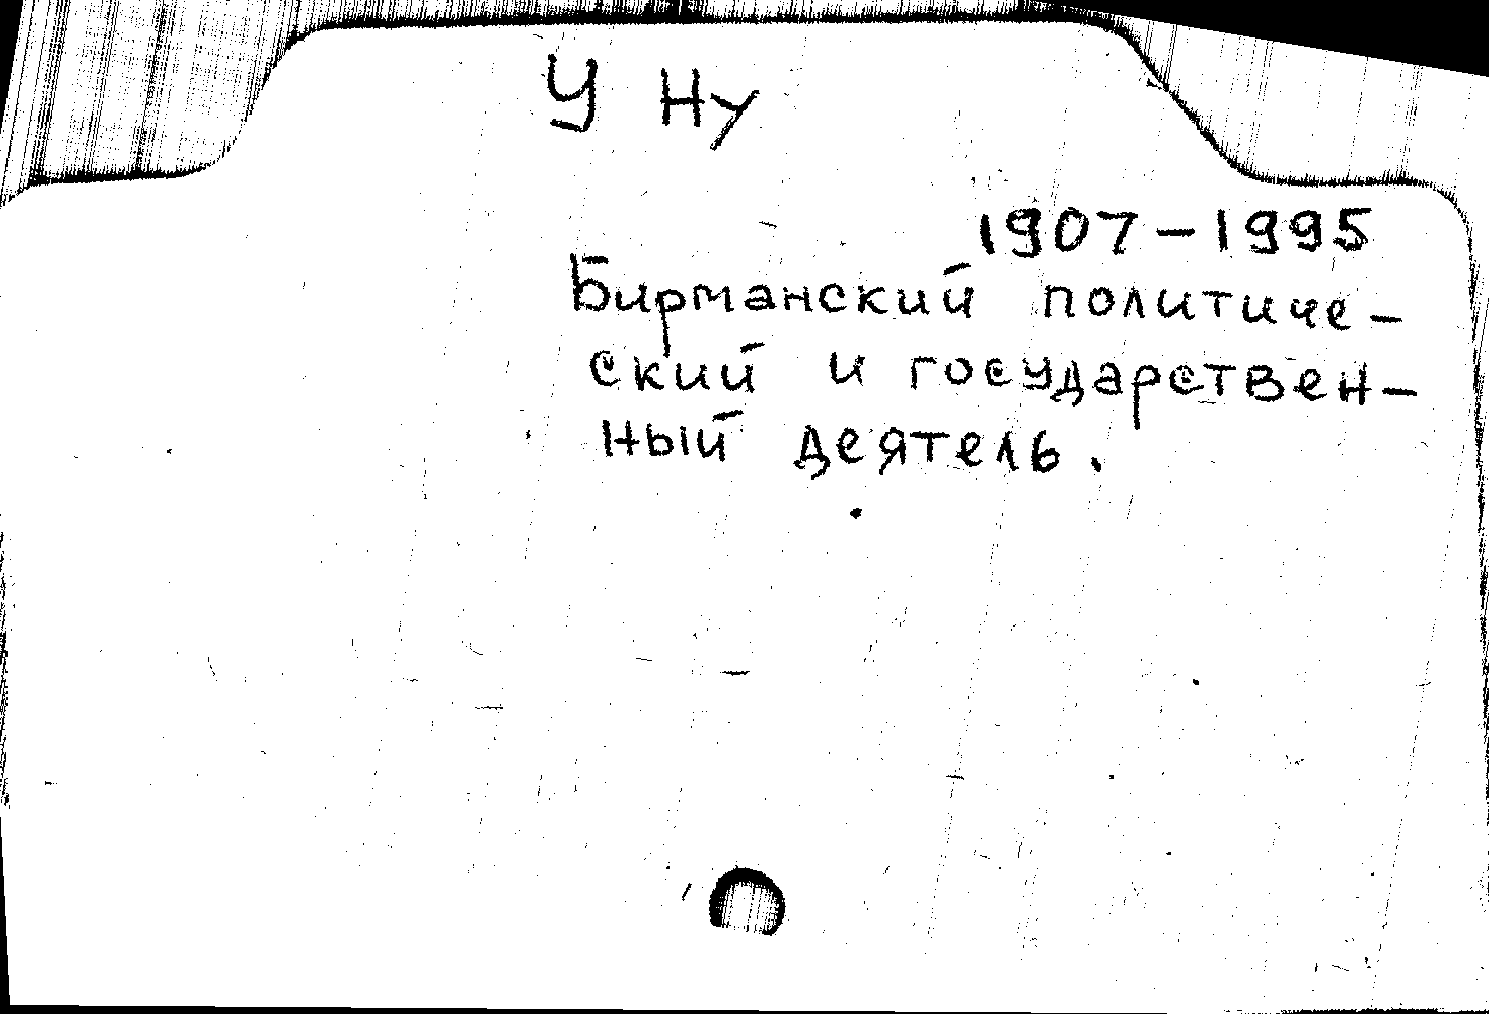 У Ну
1907-1995
Бирманский политиче-
ский и государствен-
ный деятель.